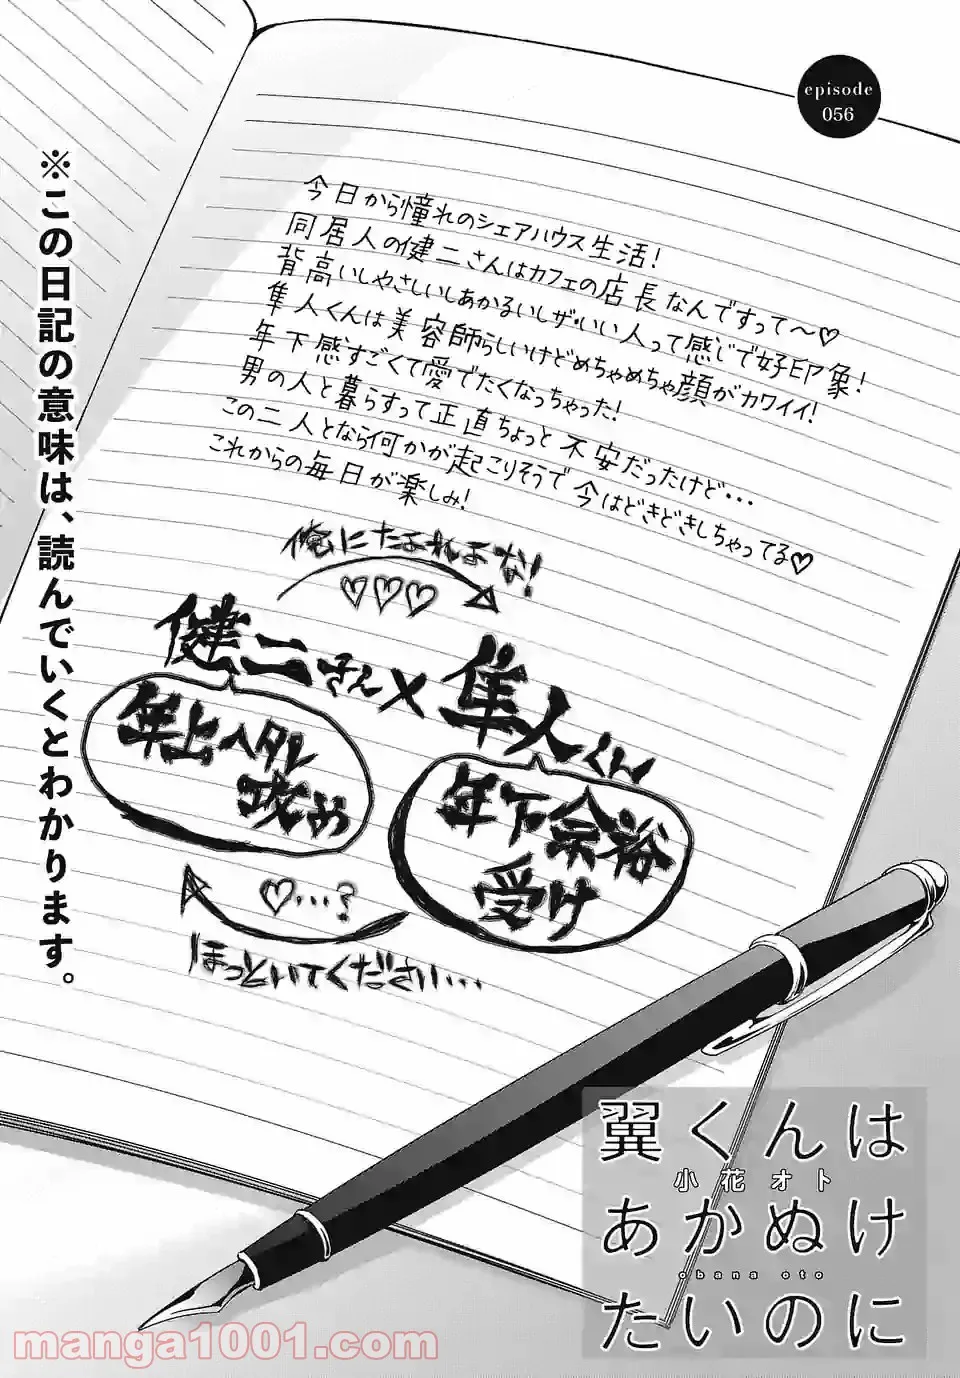 episode
056
※この日記の意味は、読んでいくとわかります。
今日から憧れのシェアハウス生活!
同居人の健二さんはカフェの店長なんですって〜♡
背高いしやさしいしあかるいしザ・いい人って感じで好印象!
隼人くんは美容師らしいけどめちゃめちゃ顔がカワイイ!
年下感すごくて愛でたくなっちゃった!
男の人と暮らすって正直ちょっと不安だったけど・・・
この二人となら何かが起こりそうで今はどきどきしちゃってる♡
これからの毎日が楽しみ!
俺にたよれよな!
♡♡♡
健二さん×隼人くん
年上ヘタレ
攻め
年下余裕
受け
♡・・・?
ほっといてください・・・
翼くんは
小花オト
あかぬけ
obana oto
たいのに
manga1001.com